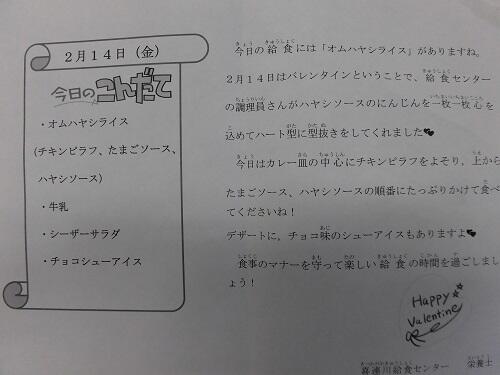 2月14日（金）
今日のこんだて
・オムハヤシライス
(チキンピラフ、たまごソース、
ハヤシソース）
・牛乳
・シーザーサラダ
・チョコシューアイス
今日の給食には「オムハヤシライス」がありますね。
2月14日はバレンタインということで、給食センター
の調理員さんがハヤシソースのにんじんを一枚一枚心を
込めてハート型に型抜きをしてくれました♥
今日はカレー皿の中心にチキンピラフをよそり、上から
たまごソース、ハヤシソースの順番にたっぷりかけて食べ
てくださいね！
デザートに，チョコ味のシューアイスもありますよ♥
食事のマナーを守って楽しい給食の時間を過ごしまし
ょう！
Happy
Valentine
喜連川給食センター　栄養士